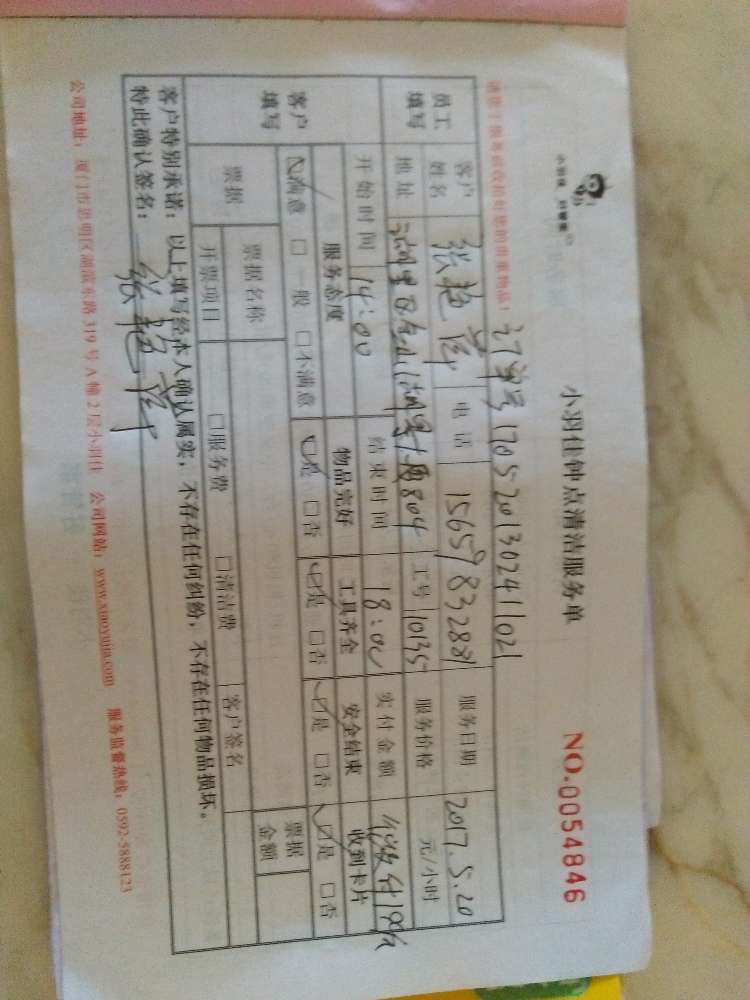 小羽佳 好管家
小羽佳钟点清洁服务单 NO.0054846
请您于服务前收拾好您的贵重物品! 订单号1705201302411021
员工填写 客户姓名 张艳萍 电话 服务日期 2017.5.20
地址 工号 10135 服务价格 元/小时
开始时间 14:00 结束时间 18:00 实付金额
客户填写 服务态度 物品完好 工具齐全 安全结束 收到卡片
☑满意 □一般 □不满意 ☑是 □否 ☑是 □否 ☑是 □否 ☑是 □否
票据 票据名称 票据金额
开票项目 □服务费 □清洁费 客户签名
客户特别承诺:以上填写经本人确认属实,不存在任何纠纷,不存在任何物品损坏。
特此确认签名: 张艳萍
公司地址:厦门市思明区湖滨东路319号A幢2层小羽佳 公司网站:www.xiaoyujia.com 服务监督热线:0592-5888123